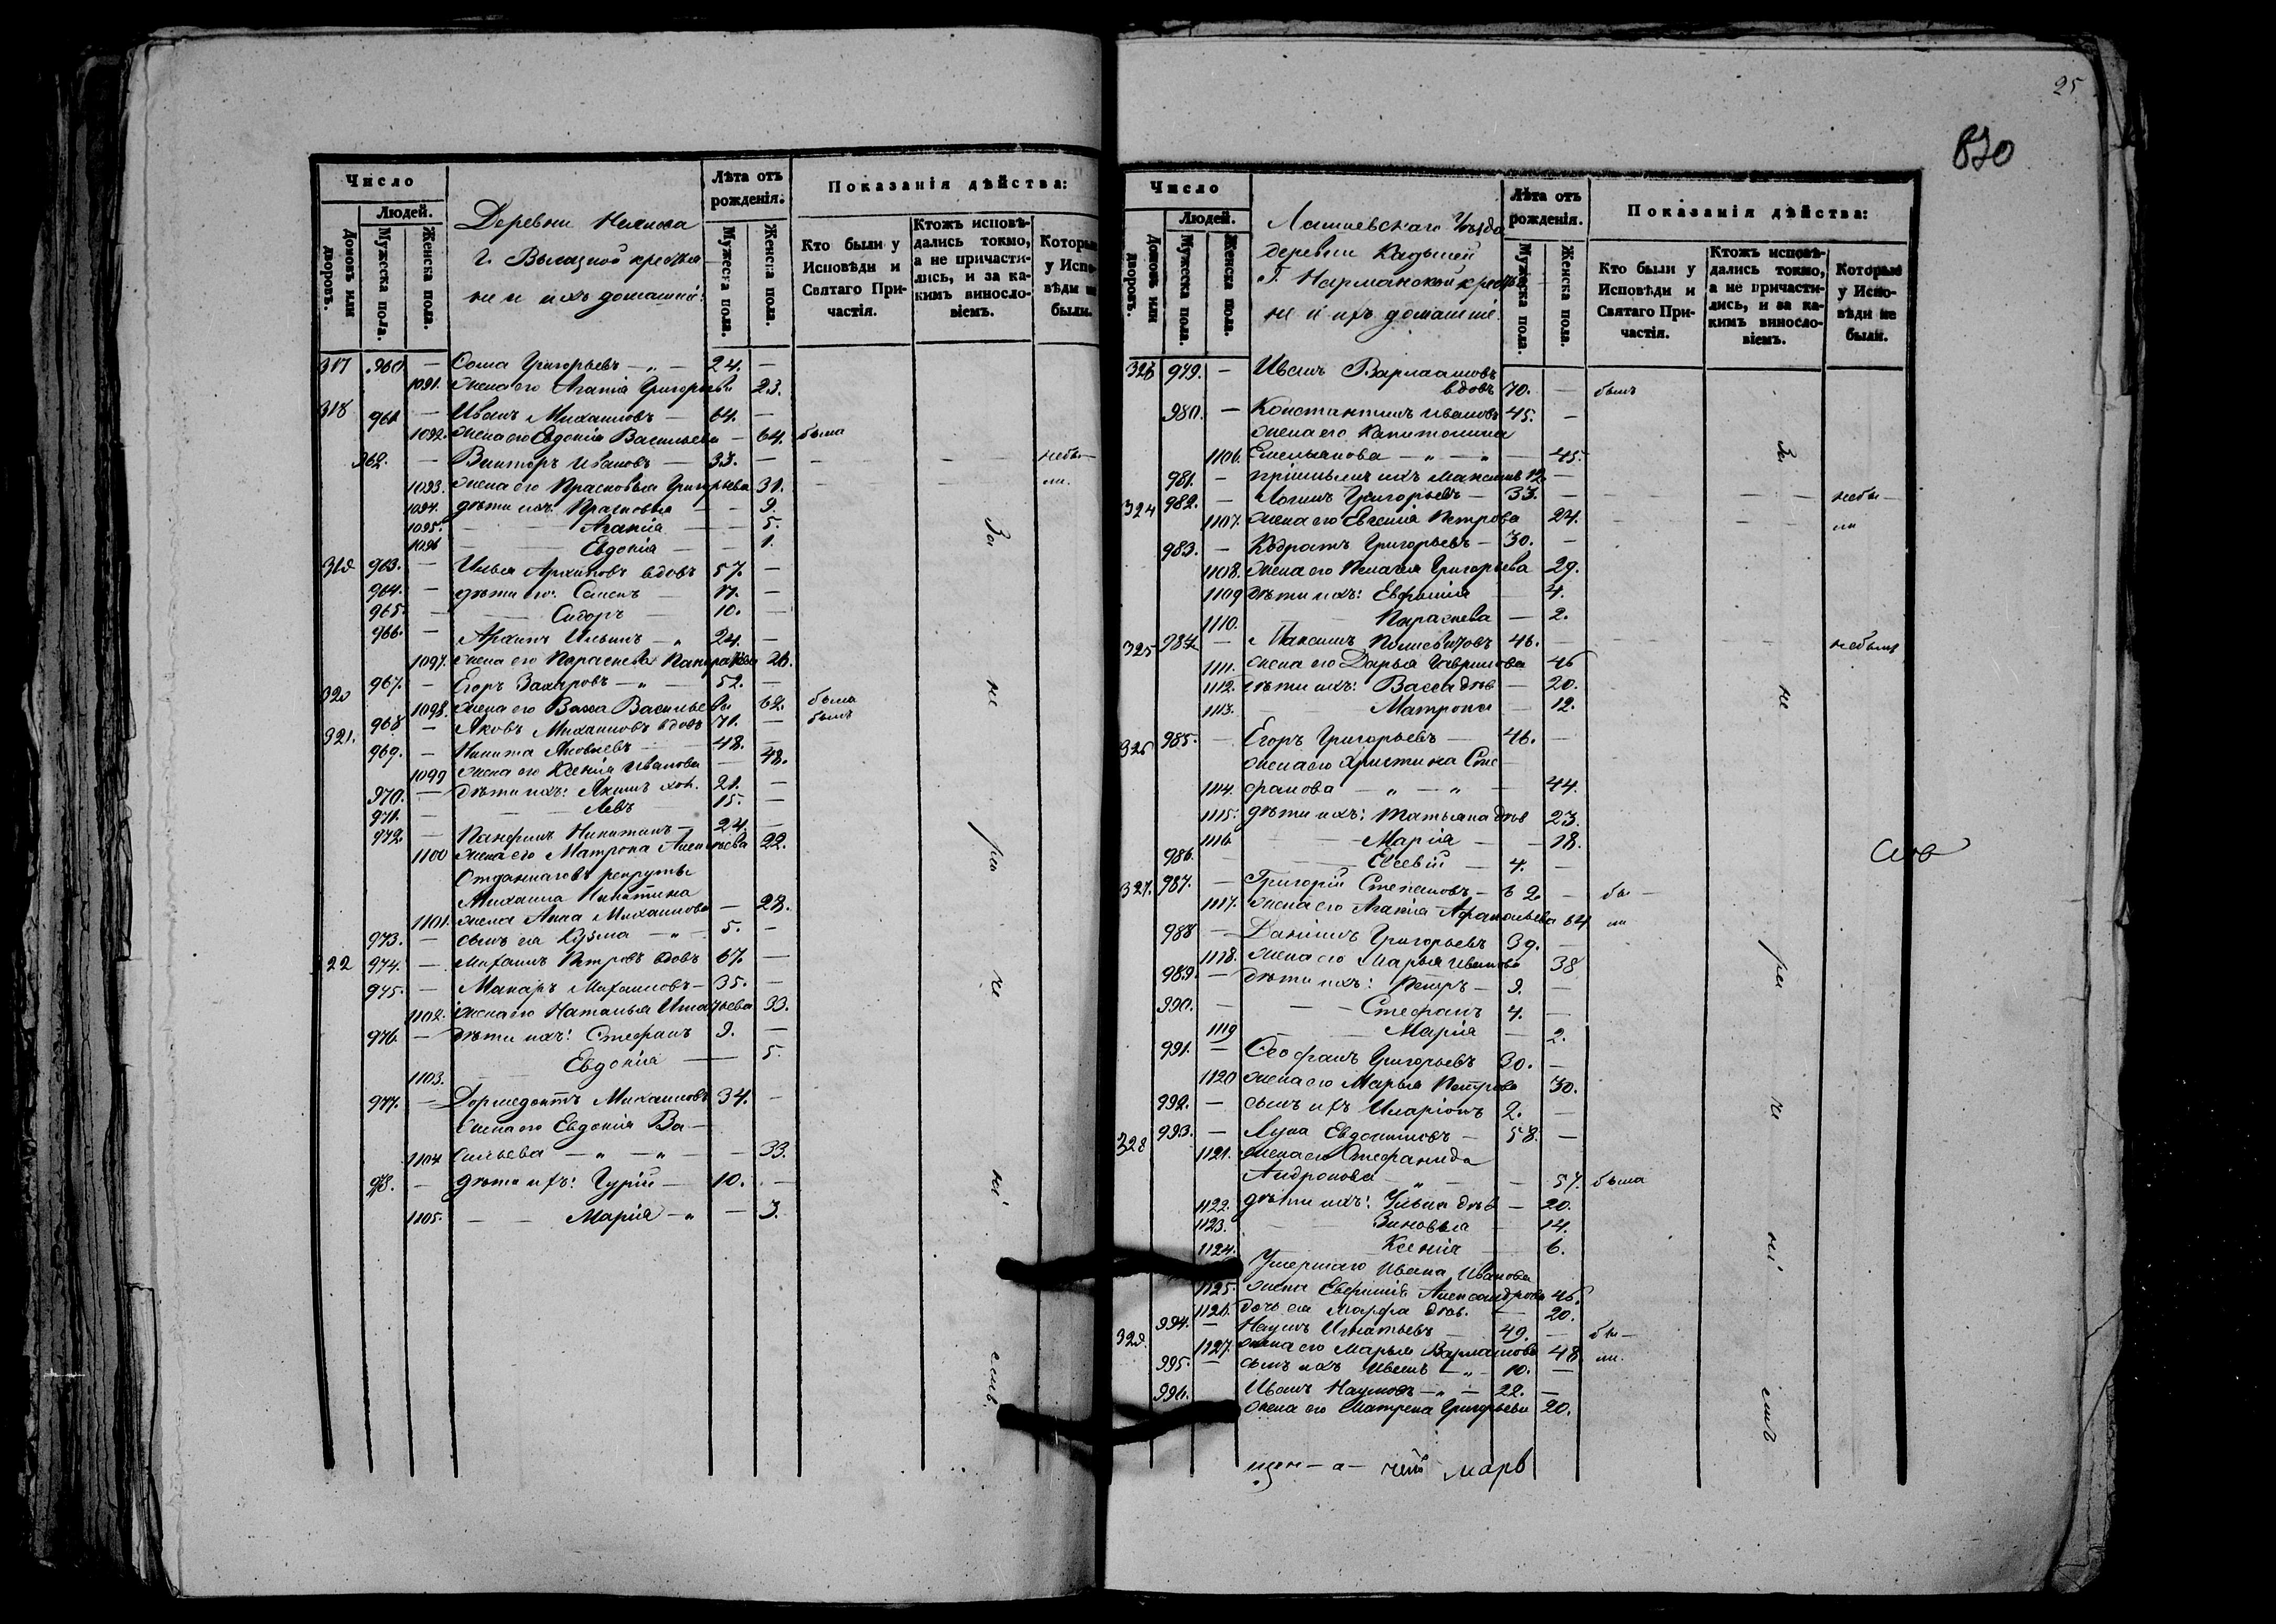 Число
Людей.
Домовъ или дворовъ.
Мужеска пола.
Женска пола.
Деревни
Г. крестья
не и ихъ домашніе:
Лѣта отъ рожденія.
Мужеска пола.
Женска пола.
Показанія дѣйства:
Кто были у Исповѣди и Святаго Причастія.
Ктожъ исповѣдались токмо, а не причастились, и за какимъ винословіемъ.
Которые у Исповѣди не были.
317 960 — Григорьевъ — „ — 24. —
1091. жена его Агапія Григорьева 23.
318 961 — Иванъ Михаиловъ — 64. —
1092. жена его Евдокія Васильева — 64. была
962. — Викторъ Ивановъ — 33. — небы—
1093. жена его Прасковья Григорьева 31. ли.
1094. дѣти ихъ Прасковья — — 9.
1095. — — Агапія — — 5.
1096 — — Евдокія — — 1.
319 963. — Илья Архиповъ вдовъ 57. —
964. — дѣти его: — 17. —
965. — — Сидоръ — 10. —
966. — Архипъ Ильинъ — „ 24. —
1097. жена его Параскева 26.
320 967. — Егоръ Захаровъ — „ — 52. —
1098. жена его Васса Васильева 62. была
321. 968 — Яковъ Михаиловъ вдовъ 71. — былъ
969. — Никита Яковлевъ — 48. —
1099 жена его Ксенія Иванова — 48.
970. — дѣти ихъ: Акимъ хол. 21. —
971. — — Левъ — 15. —
972. — Панфилъ Никитинъ — 24. —
1100 жена его Матрона 22.
Отданнаго въ рекруты
Михаила Никитина
1101. жена Анна Михаилова — 28.
973. — сынъ ея Кузьма — „ — 5. —
322 974. — Михаилъ Петровъ вдовъ 67. —
975. — Макаръ Михаиловъ — 35. —
1102. жена его Наталья Игнатьева 33.
976. — дѣти ихъ: Стефанъ 9. —
1103. Евдокія — — 5.
977. — Дормедонтъ Михаиловъ 34. —
жена его Евдокія Ва—
1104 сильева — „ — „ — — 33.
978. — дѣти ихъ: Гурій — 10. —
1105. — — Марія — „ — 3.
За
не
ре
че
ні
емъ
25
830
Число
Людей.
Домовъ или дворовъ.
Мужеска пола.
Женска пола.
Лаишевскаго Уѣзда
деревни Кадышей
Г. Нармонской крестья
не и ихъ домашніе.
Лѣта отъ рожденія.
Мужеска пола.
Женска пола.
Показанія дѣйства:
Кто были у Исповѣди и Святаго Причастія.
Ктожъ исповѣдались токмо, а не причастились, и за какимъ винословіемъ.
Которые у Исповѣди не были.
323 979. — Иванъ Варлаамовъ
вдовъ 70. — былъ
980. — Константинъ Ивановъ 45. —
жена его Капитолина
1106. Емельянова — „ — „ — 45.
981. — пріимышъ ихъ Максимъ 12 —
324 982. — Логинъ Григорьевъ — 33. — небы —
1107. жена его Евгенія Петрова 24. ли
983. — Кодратъ Григорьевъ — 30. —
1108. жена его Пелагея Григорьева 29.
1109 дѣти ихъ: Евфимія — 4.
1110. Параскева — 2.
325 984 — 46. — небыли
1111. жена его Дарья Гаврилова 46
1112. дѣти ихъ: Васса дѣв — 20.
1113. — Матрона — 12.
326 985. — Егоръ Григорьевъ — 46. —
жена его Христина Сте
1114. фанова — „ — „ — 44.
1115. дѣти ихъ: Татьяна дѣв 23.
1116. — Марія — — 18.
986. — Евсевій — 4. —
327. 987. — Григорій Степановъ — 62. — бы —
1117. жена его Агапія Афанасьева 64 ли
988 — Даниилъ Григорьевъ 39. —
1118. жена его Марья Иванова 38
989. — дѣти ихъ: Петръ — 9. —
990. — — Стефанъ 4. —
1119 — Марія — 2.
991. — Феофанъ Григорьевъ 30. —
1120 жена его Марья Петрова 30.
992. — сынъ ихъ Иларіонъ 2. —
328 993. — Лука Евдокимовъ — 58. —
1121. жена его Стефанида
Андронова — „ — — 57. была
1122. дѣти ихъ: Ульяна дѣв — 20.
1123. Зиновья — 14.
1124. Ксенія — 6.
Умершаго Ивана Иванова
1125. жена Евфимія Александрова 46.
1126. дочь ея Марфа дѣв. — 20.
329. 994. — Наумъ Игнатьевъ — 49. — бы —
1127. жена его Марья Варлаамова 48 ли.
995. — сынъ ихъ Иванъ — „ — 10. —
996. Иванъ Наумовъ — „ — 22. —
жена его Матрена Григорьева 20.
За
не
ре
че
ні
емъ